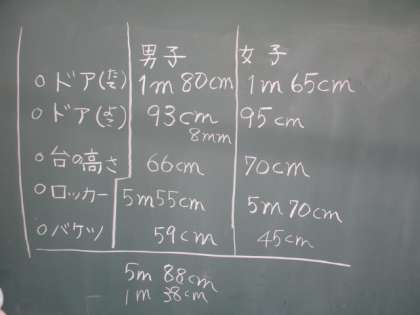 男子 女子
○ドア(たて) 1m 80cm 1m 65cm
○ドア(よこ) 93cm 95cm
8mm
○台の高さ 66cm 70cm
○ロッカー 5m55cm 5m70cm
○バケツ 59cm 45cm
5m 88cm
- 1m 38cm